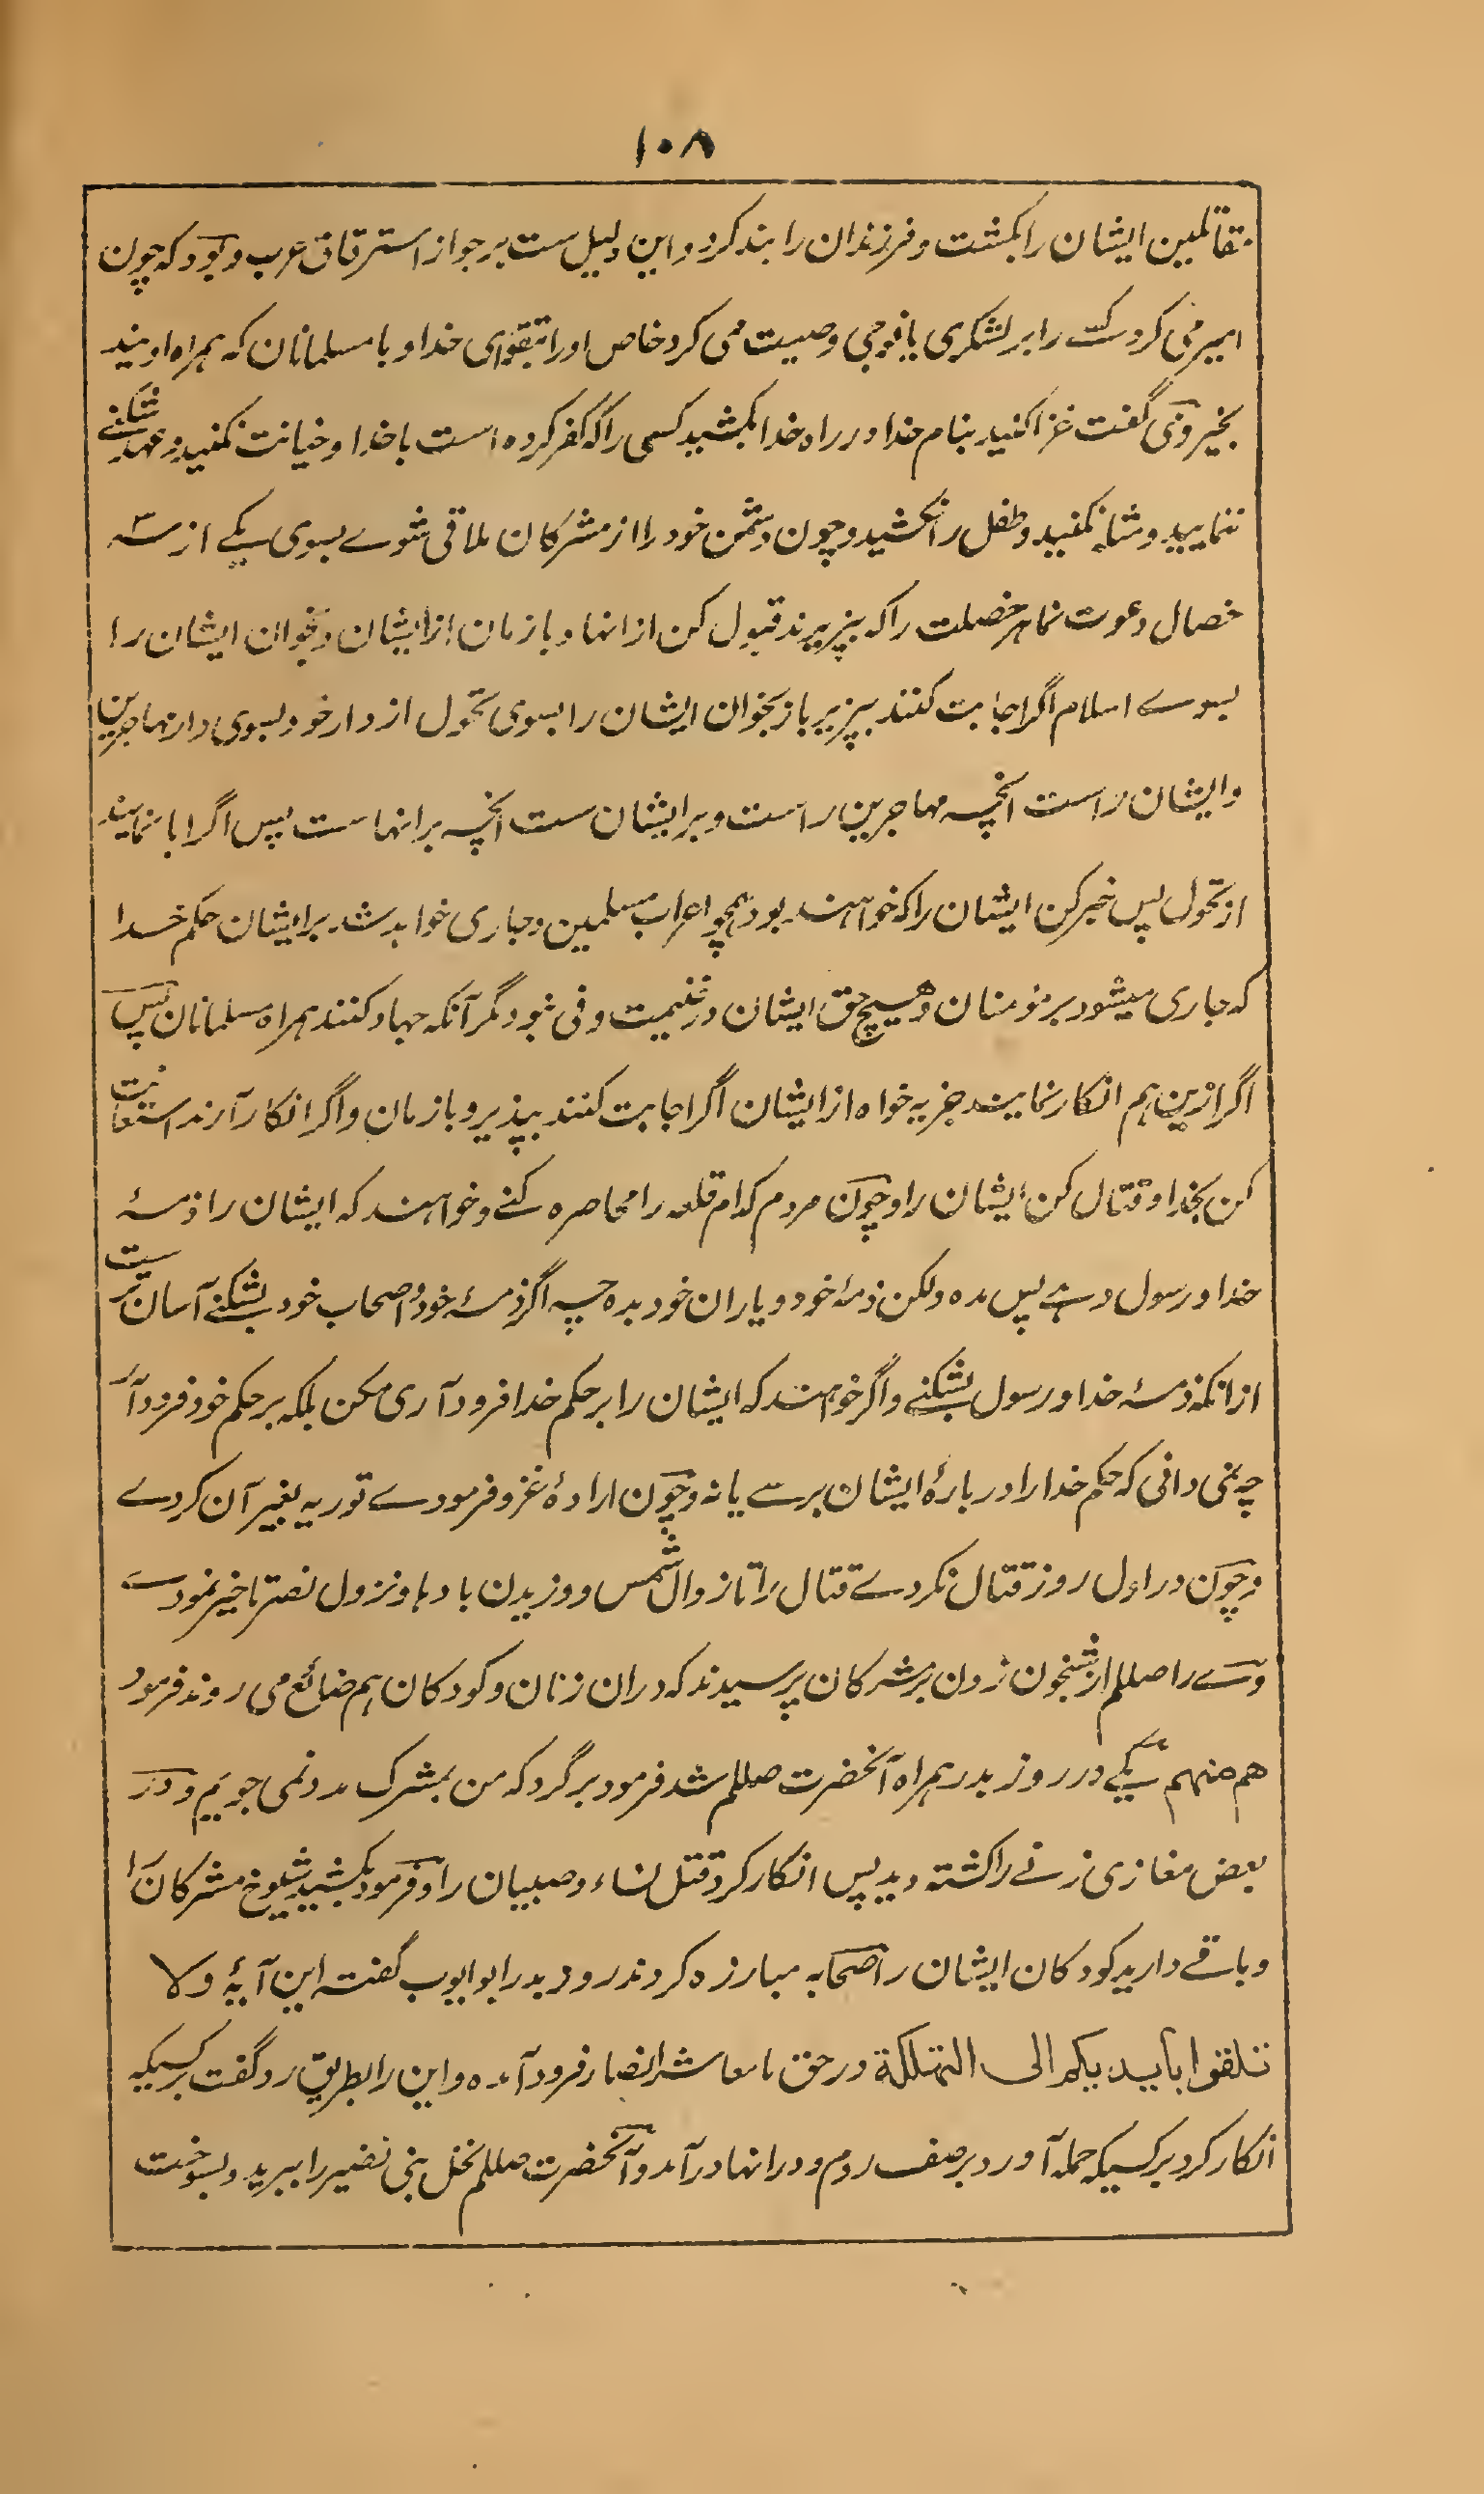 ۱۰۸
مقاتلین ایشان را بکشت و فرزندان را بند کرد و این دلیل ست بر جواز استرقاق عرب و بود که چون
امیر می کرد کسے را بر لشکری یا فوجی وصیت می کرد خاص او را بتقوای خدا و با مسلمانان که همراه اویند
بخیر و می گفت غزا کنید بنام خدا و در راه خدا بکشید کسی را که کفر کرده است با خدا و خیانت نکنید و عهد شکنے
ننمایید و مثله نکنید و طفل را نکشید و چون دشمن خود را از مشرکان ملاقی شوے بسوی یکے از سه
خصال دعوت نما هر خصلت را که بپزیرند قبول کن از انها و باز مان از ایشان و بخوان ایشان را
بسوے اسلام اگر اجابت کنند بپزیر باز بخوان ایشان را بسوی تحول از دار خود بسوی دار مهاجرین
و ایشان راست انچه مهاجرین راست و بر ایشان ست انچه بر انهاست پس اگر ابا نمایند
از تحول پس خبر کن ایشان را که خواهند بود همچو اعراب مسلمین و جاری خواهد شد بر ایشان حکم خدا
که جاری میشود بر مؤمنان و هیچ حق ایشان در غنیمت و فی نبود مگر آنکه جهاد کنند همراه مسلمانان پس
اگر ازین هم انکار نمایند جزیه خواه از ایشان اگر اجابت کنند بپذیر و باز مان و اگر انکار آرند استعانت
کن بخدا و قتال کن ایشان را و چون مردم کدام قلعه را محاصره کنے و خواهند که ایشان را ذمۀ
خدا و رسول دهے پس مده ولکن ذمۀ خود و یاران خود بده چه اگر ذمۀ خود و اصحاب خود بشکنے آسان تر ست
از انکه ذمۀ خدا و رسول بشکنے و اگر خواهند که ایشان را بر حکم خدا فرود آری مکن بلکه بر حکم خود فرود آر
چه نمی دانی که حکم خدا را در بارۀ ایشان برسے یا نه و چون ارادۀ غزو فرمودے توریه بغیر آن کردے
و چون در اول روز قتال نکردے قتال را تا زوال شمس و وزیدن بادها و نزول نصر تاخیر نمودے
و سے را صللم از شبخون زدن بر مشرکان پرسیدند که دران زنان و کودکان هم ضائع می روند فرمود
هم منهم یکے در روز بدر همراه آنحضرت صللم شد فرمود بر گرد که من بمشرک مدد نمی جویم و در
بعض مغازی زنے را کشته دید پس انکار کرد قتل نساء و صبیان را و فرمود بکشید شیوخ مشرکان را
و باقے دارید کودکان ایشان را صحابه مبارزه کردند روز بدر ابو ایوب گفت این آیۀ و لا
تلقوا بأیدیکم الی التهلکة در حق ما معاشر انصار فرود آمده و این را بطریق رد گفت بر کسیکه
انکار کرد بر کسیکه حمله آورد بر صف روم و در انها در آمد و آنحضرت صللم نخل بنی نضیر را ببرید و بسوخت